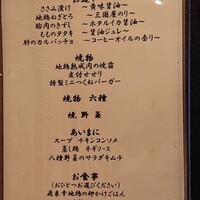 ささみ漬け　～黄味醤油～
地鶏ねぎとろ　～三國屋のり～
胸肉のきずし　～ホタルイカ醤油～
もものタタキ　～醤油ジュレ～
肝のカルパッチョ　～コーヒーオイルの香り～
焼物
地鶏熟成肉の焼霜
皮付せせり
特製ミニつくねバーガー
焼物　六種
焼野菜
あいまに
スープ　チキンコンソメ
蒸し鶏　ネギソース
八種野菜のサラダキムチ
お食事
（おひとつお選びください）
地鶏の卵かけごはん